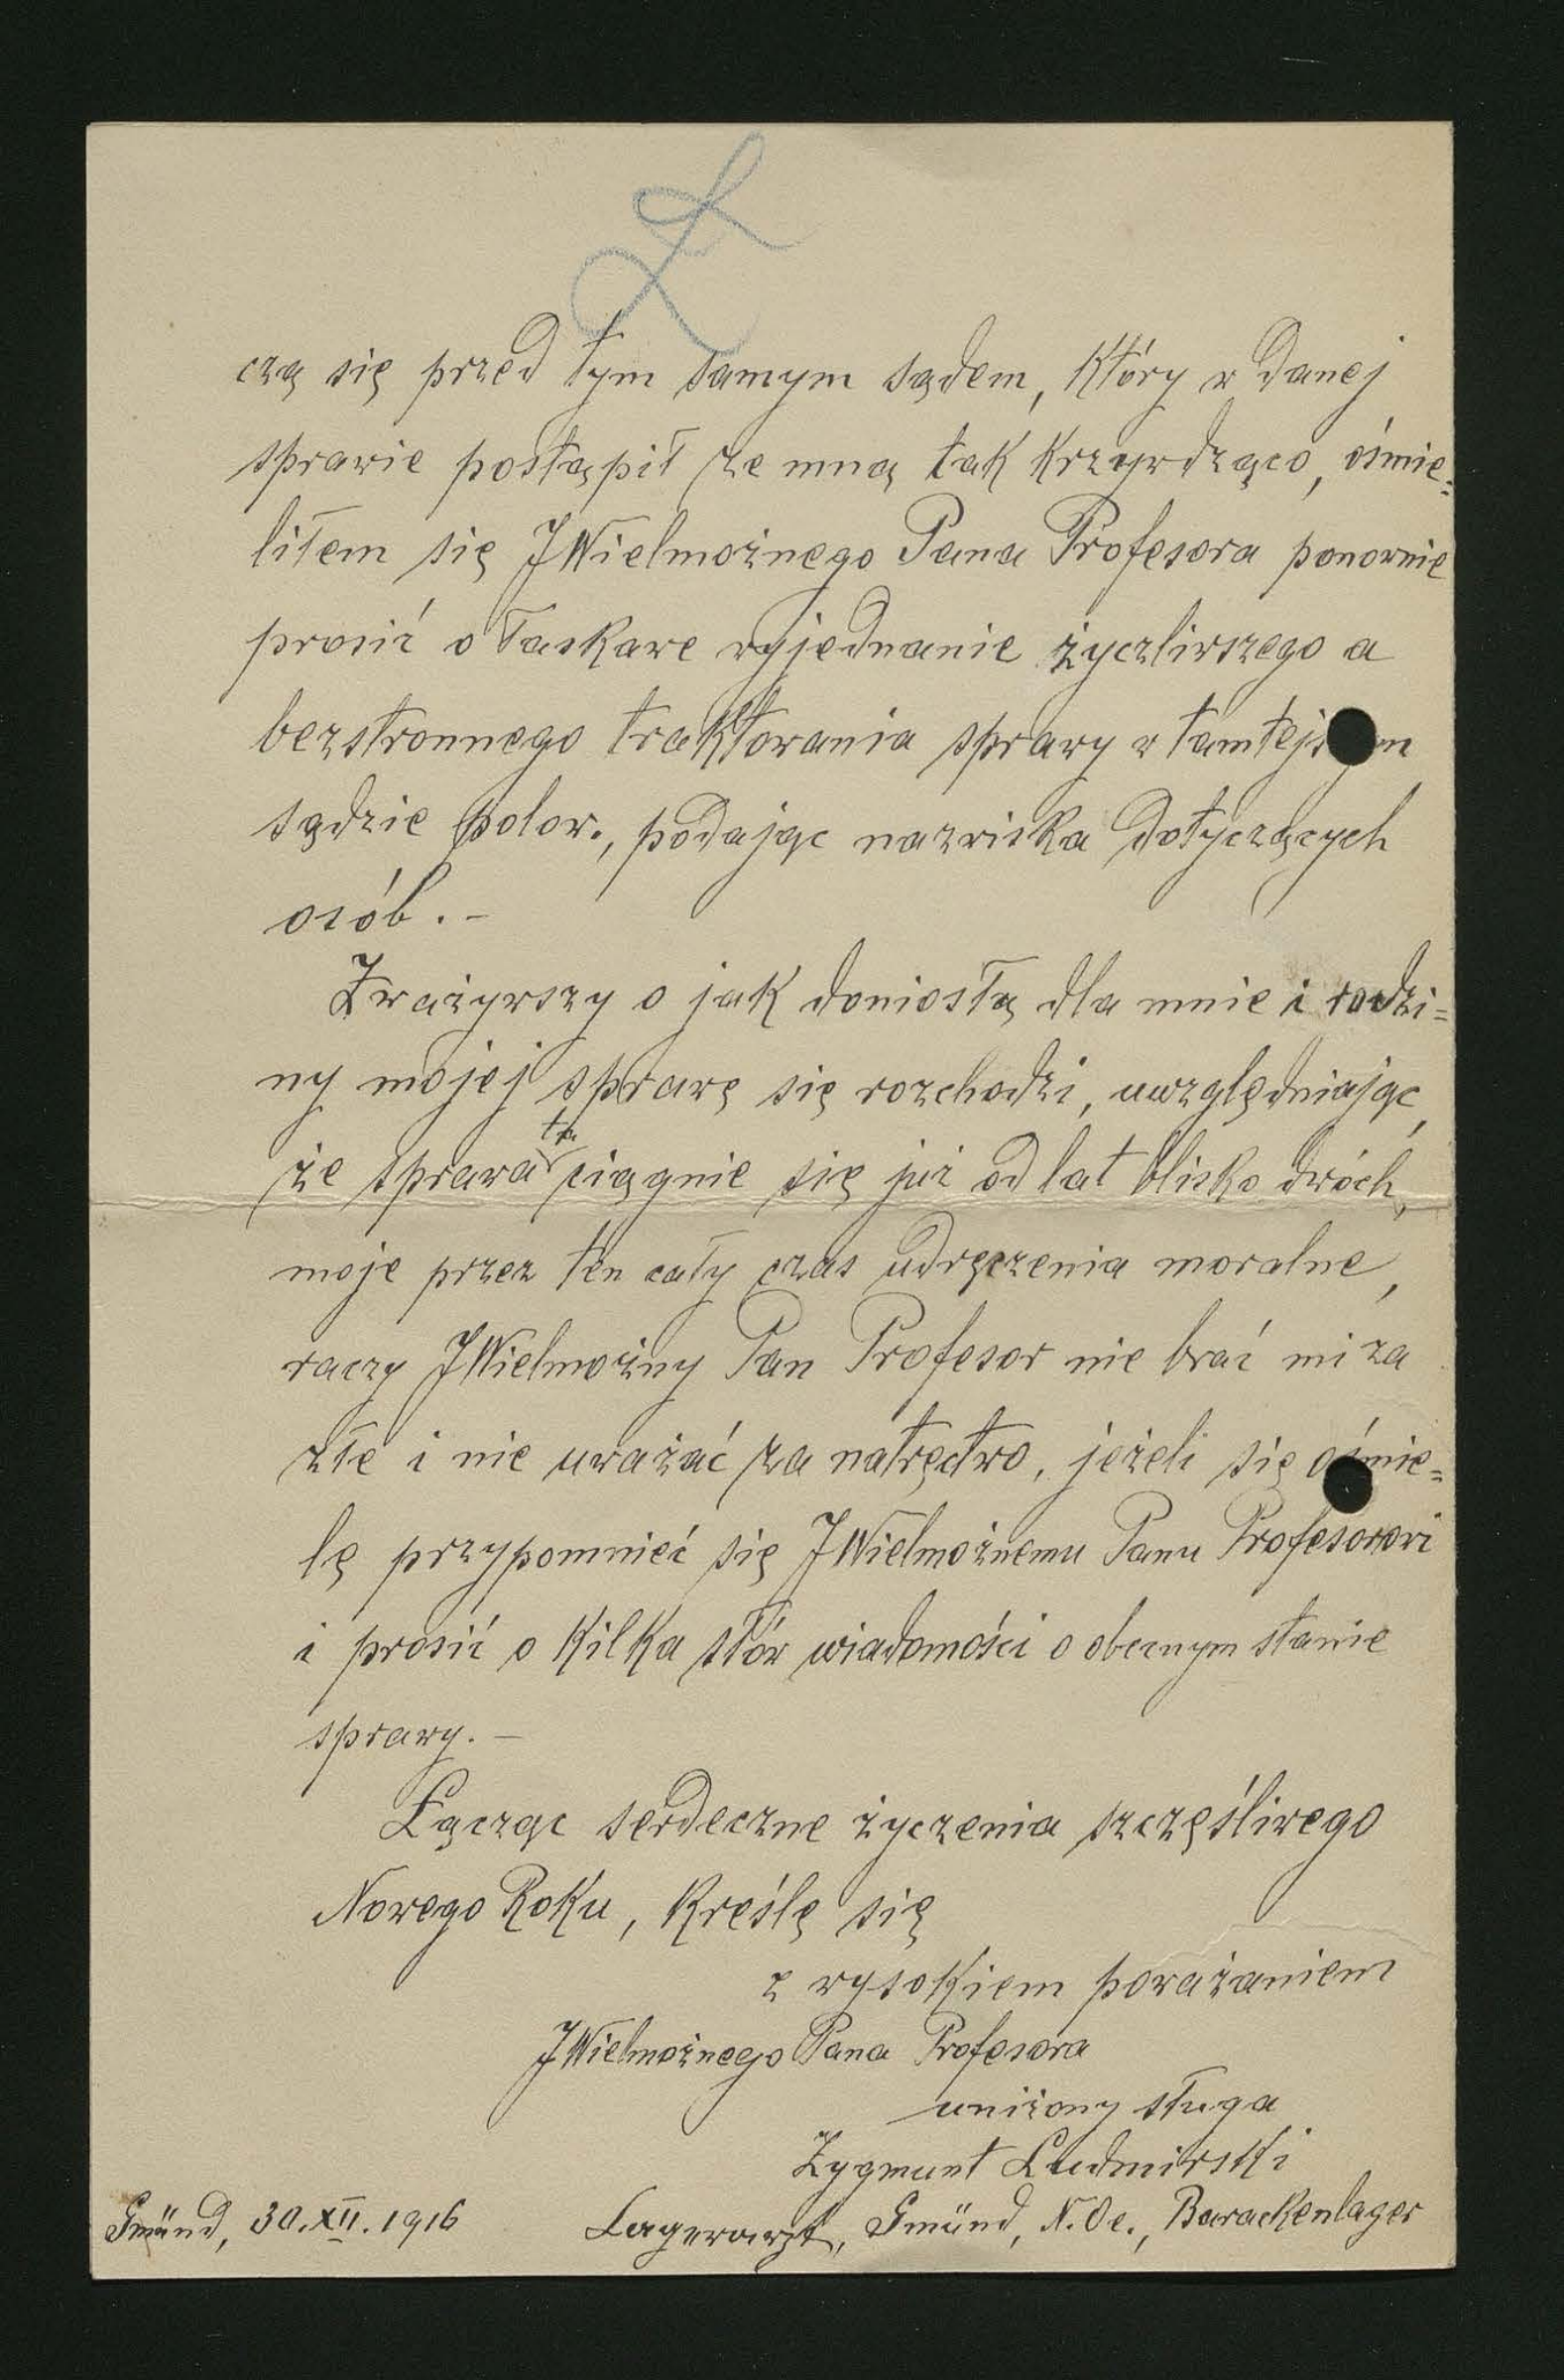 czą się przed tym samym sądem, który w danej
sprawie postąpił ze mną tak krzywdząco, ośmie=
liłem się JWielmożnego Pana Profesora ponownie
prosić o łaskawe wyjednanie życzliwszego a
bezstronnego traktowania sprawy w tamtejs ym
sądzie polow., podając nazwiska dotyczących
osób. -
Zważywszy o jak doniosłą dla mnie i rodzi=
ny mojej sprawę się rozchodzi, uwzględniając,
że sprawa ta ciągnie się już od lat blisko dwóch,
moje przez ten cały czas udręczenia moralne,
raczy JWielmożny Pan Profesor nie brać mi za
złe i nie uważać za natręctwo, jeżeli się ośmie=
lę przypomnieć się JWielmożnemu Panu Profesorowi
i prosić o kilka słów wiadomości o obecnym stanie
sprawy. -
Łącząc serdeczne życzenia szczęśliwego
Nowego Roku, kreślę się
z wysokiem poważaniem
JWielmożnego Pana Profesora
uniżony sługa
Zygmunt Ludmirski
Gmünd, 30.XII.1916 Lagerarzt, Gmünd, N.Oe., Barackenlager